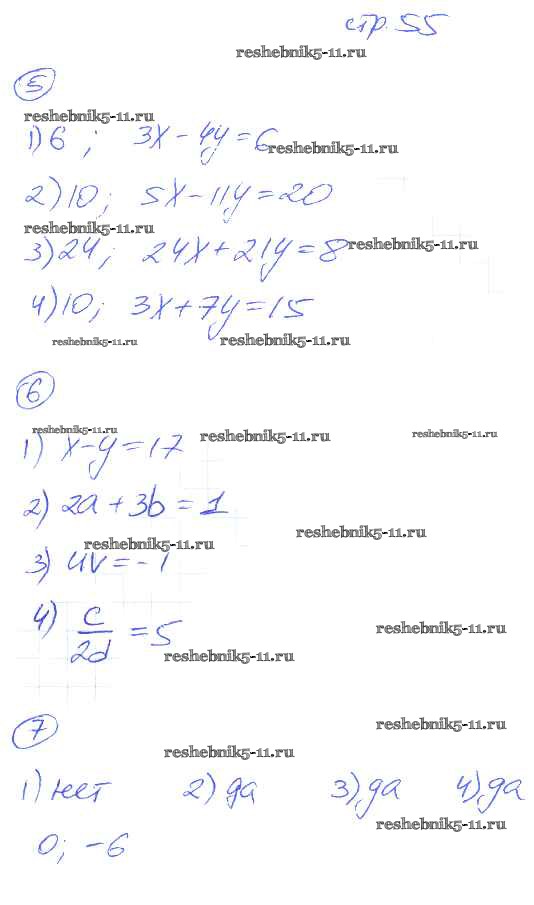 стр. 55
reshebnik5-11.ru
5
reshebnik5-11.ru
1) 6 ; 3x - 4y = 6
reshebnik5-11.ru
2) 10; 5x - 11y = 20
reshebnik5-11.ru
3) 24; 24x + 21y = 8
reshebnik5-11.ru
4) 10; 3x + 7y = 15
reshebnik5-11.ru reshebnik5-11.ru
6
reshebnik5-11.ru reshebnik5-11.ru reshebnik5-11.ru
1) x - y = 17
2) 2a + 3b = 1
reshebnik5-11.ru
reshebnik5-11.ru
3) uv = -1
4) c/2d = 5
reshebnik5-11.ru
reshebnik5-11.ru
7
reshebnik5-11.ru
reshebnik5-11.ru
1) нет 2) да 3) да 4) да
reshebnik5-11.ru
0; -6